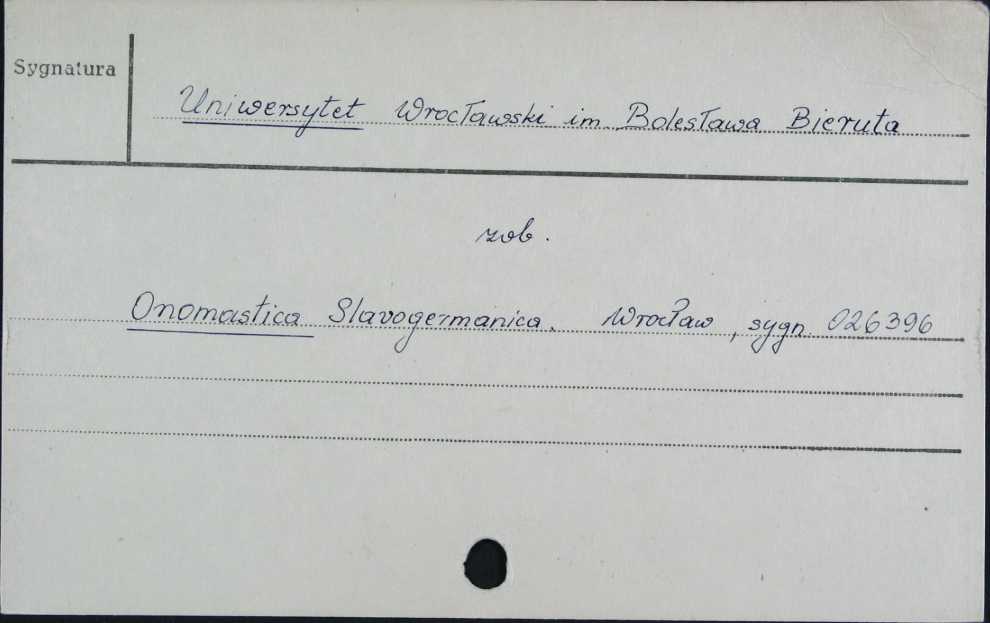 Sygnatura
Uniwersytet Wrocławski im Bolesława Bieruta
zob.
Onomastica Slavogermanica. Wrocław, sygn. 026396